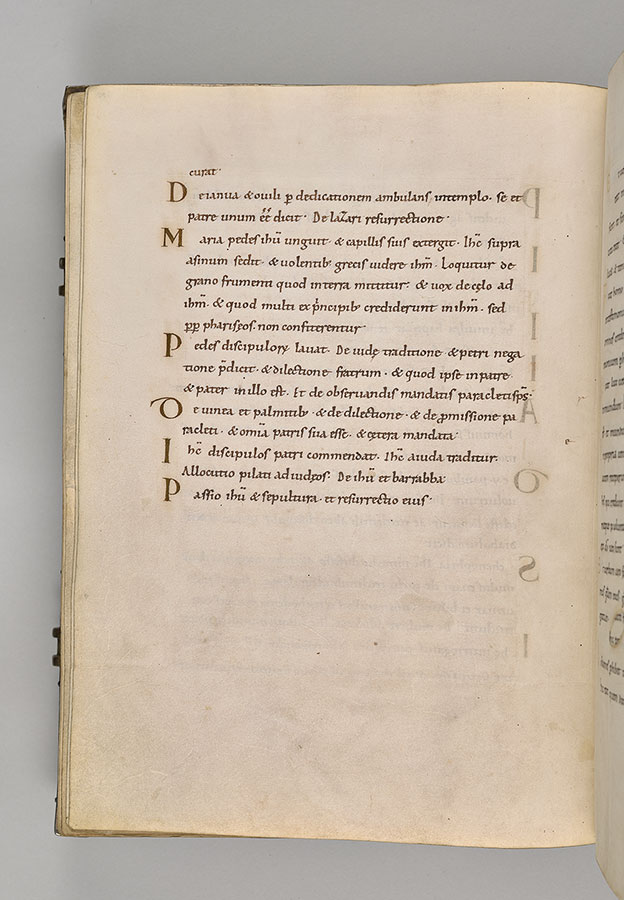 curat·
De ianua & ouili ꝑ dedicationem ambulans intemplo· se et
patre unum eē dicit· De lazari resurrectione·
Maria pedes ihū unguit· & capillis suis extergit· Ihc̄ supra
asinum sedit· & uolentib; grecis uidere ihm̄· Loquitur de
grano frumenti quod interra mittitur: & uox decęlo ad
ihm̄· & quod multi ex p̄ncipib; crediderunt in ihm̄· sed
ꝓꝑ phariseos non confiterentur·
Pedes discipuloꝝ lauat· De iudę traditione & petri nega
tione p̄dicit· & dilectione fratrum· & quod ipse in patre·
& pater in illo est· Et de obseruandis mandatis paracletisps̄·
De uinea et palmitib; & de dilectione· & de ꝓmissione pa
racleti· & omīa patris sua esse· & cętera mandata·
Ihc̄ discipulos patri commendat· Ihc̄ aiuda traditur·
Allocutio pilati ad iudęos: De ihū et barrabba·
Passio ihū & sepultura· et resurrectio eius·